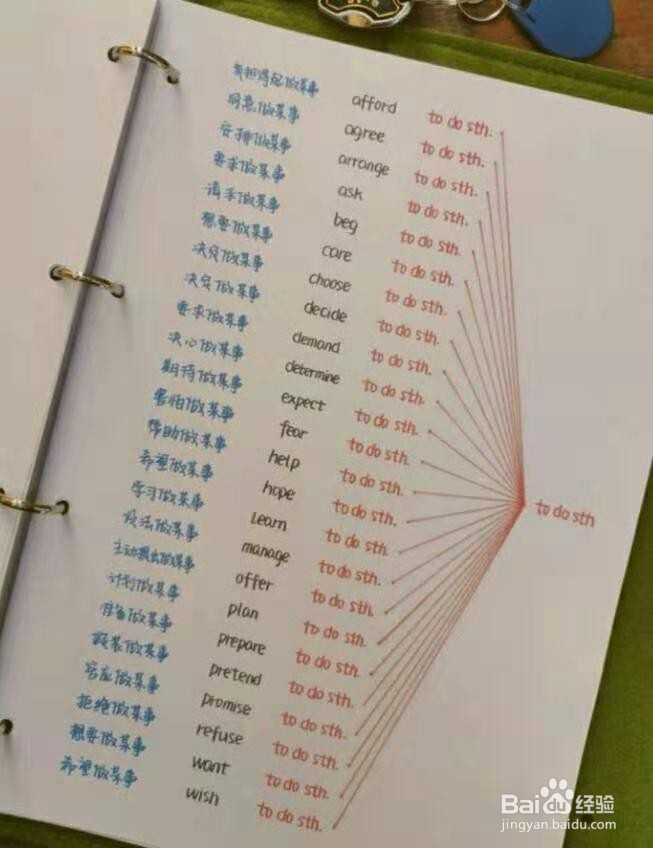 负担得起做某事 afford to do sth.
同意做某事 agree to do sth.
安排做某事 arrange to do sth.
要求做某事 ask to do sth.
请求做某事 beg to do sth.
想要做某事 care to do sth.
决定做某事 choose to do sth.
决定做某事 decide to do sth.
要求做某事 demand to do sth.
决心做某事 determine to do sth.
期待做某事 expect to do sth.
害怕做某事 fear to do sth.
帮助做某事 help to do sth.
希望做某事 hope to do sth.
学习做某事 learn to do sth.
设法做某事 manage to do sth.
主动提出做某事 offer to do sth.
计划做某事 plan to do sth.
准备做某事 prepare to do sth.
假装做某事 pretend to do sth.
答应做某事 promise to do sth.
拒绝做某事 refuse to do sth.
想要做某事 want to do sth.
希望做某事 wish to do sth.
to do sth
Baidu经验
jingyan.baidu.com